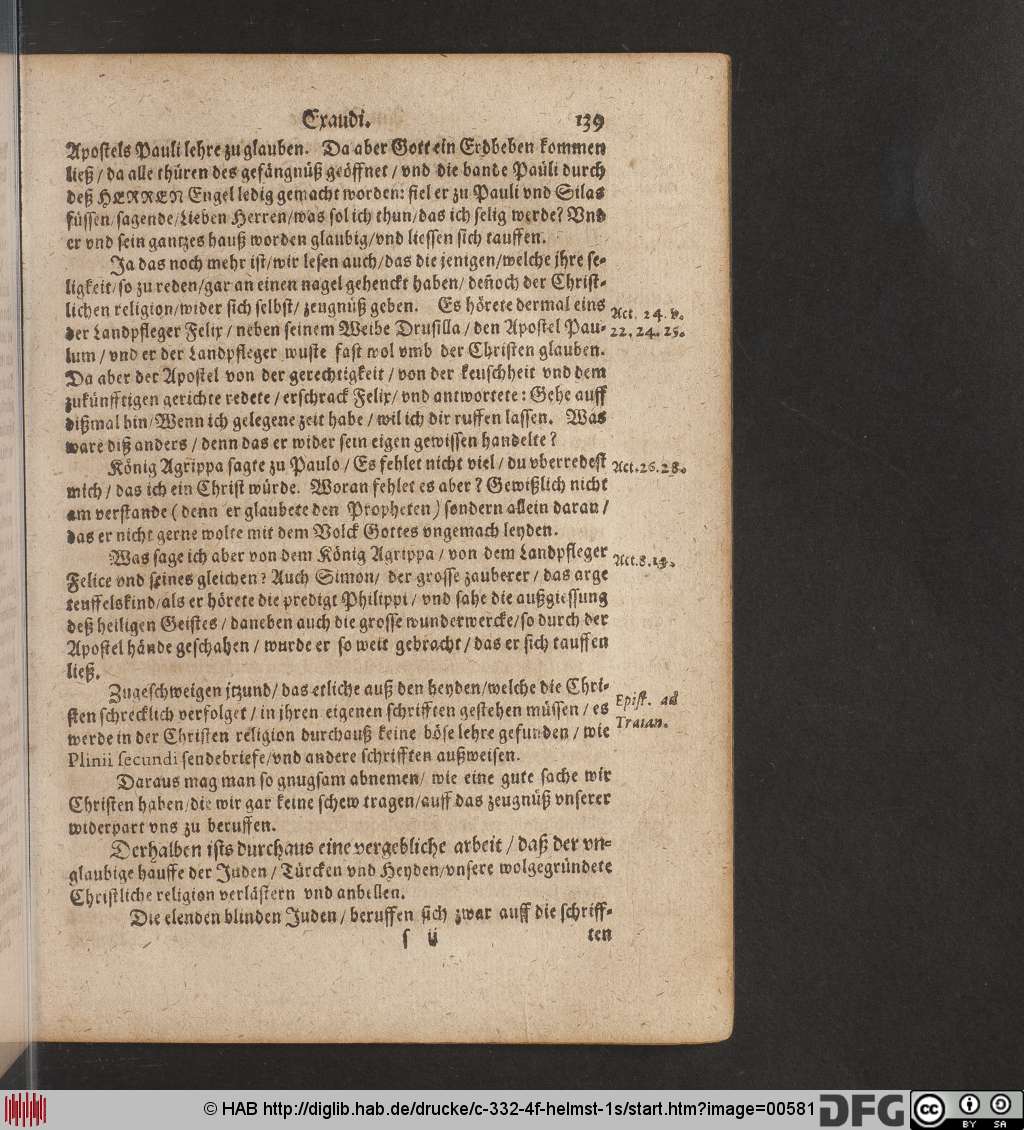 Exaudi. 139
Apostels Pauli lehre zu glauben. Da aber Gott ein Erdbeben kommen
ließ / da alle thüren des gefängnüß geöffnet / vnd die bande Pauli durch
deß HERREN Engel ledig gemacht worden: fiel er zu Pauli vnd Silas
füssen / sagende / Lieben Herren / was sol ich thun / das ich selig werde? Vnd
er vnd sein gantzes hauß worden glaubig / vnd liessen sich tauffen.
Ja das noch mehr ist / wir lesen auch / das die jenigen / welche jhre se-
ligkeit / so zu reden / gar an einen nagel gehenckt haben / deñoch der Christ-
lichen religion / wider sich selbst / zeugnüß geben. Es hörete dermal eins
der Landpfleger Felix / neben seinem Weibe Drusilla / den Apostel Pau-
lum / vnd er der Landpfleger wuste fast wol vmb der Christen glauben.
Da aber der Apostel von der gerechtigkeit / von der keuschheit vnd dem
zukünfftigen gerichte redete / erschrack Felix / vnd antwortete: Gehe auff
dißmal hin / Wenn ich gelegene zeit habe / wil ich dir ruffen lassen. Was
ware diß anders / denn das er wider sein eigen gewissen handelte?
König Agrippa sagte zu Paulo / Es fehlet nicht viel / du vberredest
mich / das ich ein Christ würde. Woran fehlet es aber? Gewißlich nicht
am verstande (denn er glaubete den Propheten) sondern allein daran /
das er nicht gerne wolte mit dem Volck Gottes vngemach leyden.
Was sage ich aber von dem König Agrippa / von dem Landpfleger
Felice vnd seines gleichen? Auch Simon / der grosse zauberer / das arge
teuffelskind / als er hörete die predigt Philippi / vnd sahe die außgiessung
deß heiligen Geistes / daneben auch die grosse wunderwercke / so durch der
Apostel hände geschahen / wurde er so weit gebracht / das er sich tauffen
ließ.
Zugeschweigen jtzund / das etliche auß den heyden / welche die Chri-
sten schrecklich verfolget / in jhren eigenen schrifften gestehen müssen / es
werde in der Christen religion durchauß keine böse lehre gefunden / wie
Plinii secundi sendebriefe / vnd andere schrifften außweisen.
Daraus mag man so gnugsam abnemen / wie eine gute sache wir
Christen haben / die wir gar keine schew tragen / auff das zeugnüß vnserer
widerpart vns zu beruffen.
Derhalben ists durchaus eine vergebliche arbeit / daß der vn-
glaubige hauffe der Juden / Türcken vnd Heyden / vnsere wolgegründete
Christliche religion verlästern vnd anbellen.
Die elenden blinden Juden / beruffen sich zwar auff die schriff-
s ij ten
Act. 24. v.
22. 24. 25.
Act. 26. 28.
Act. 8. 13.
Epist. ad
Traian.
© HAB http://diglib.hab.de/drucke/c-332-4f-helmst-1s/start.htm?image=00581
DFG
cc
BY SA